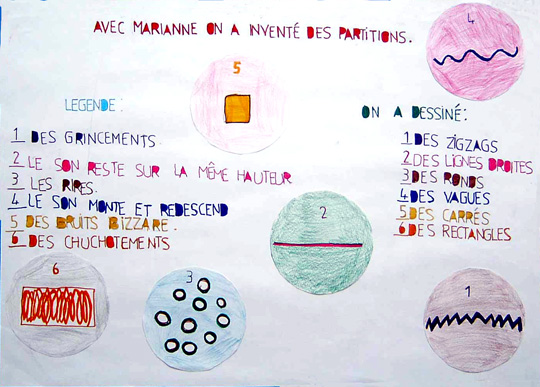 AVEC MARIANNE ON A INVENTÉ DES PARTITIONS.
4
5
LEGENDE:
1 DES GRINCEMENTS
2 LE SON RESTE SUR LA MÊME HAUTEUR
3 LES RIRES.
4 LE SON MONTE ET REDESCEND
5 DES BRUITS BIZZARE.
6 DES CHUCHOTEMENTS
ON A DESSINÉ:
1 DES ZIGZAGS
2 DES LIGNES DROITES
3 DES RONDS
4 DES VAGUES
5 DES CARRÉS
6 DES RECTANGLES
2
6
3
1